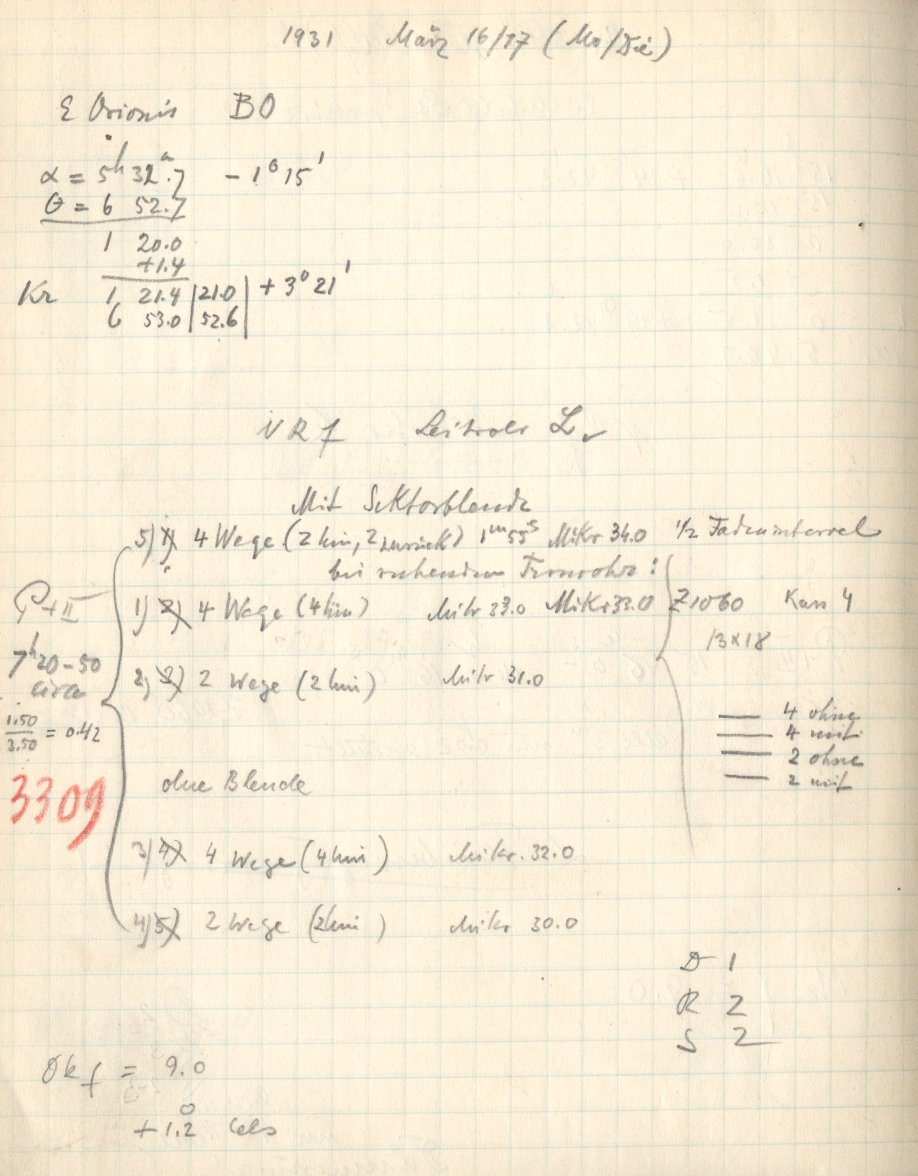 1931 März 16/17 (Mo/Die)
ε Orionis B0
α = 5h 32m.7 - 1° 15'
θ = 6 52.7
1 20.0
+1.4
Kr 1 21.4 |21.0| + 3° 21'
6 53.0 |52.6|
VR f Leitrohr L
Mit Sektorblende
5) 1) 4 Wege (2 hin, 2 zurück) 1m 55s Mikr 34.0 1/2 Fadenintervall
bei ruhendem Fernrohr!
1) 2) 4 Wege (4 hin) Mikr 33.0 Mikr 33.0 Z1060 Kass 4
13x18
7h 20-50
circa
2) 3) 2 Wege (2 hin) Mikr 31.0
1.50/3.50 = 0.42
4 ohne
4 mit
2 ohne
2 mit
3309
ohne Blende
3) 4) 4 Wege (4 hin) Mikr. 32.0
4) 5) 2 Wege (2 hin) Mikr 30.0
D 1
R 2
S 2
Ok f = 9.0
+1.2° Cels